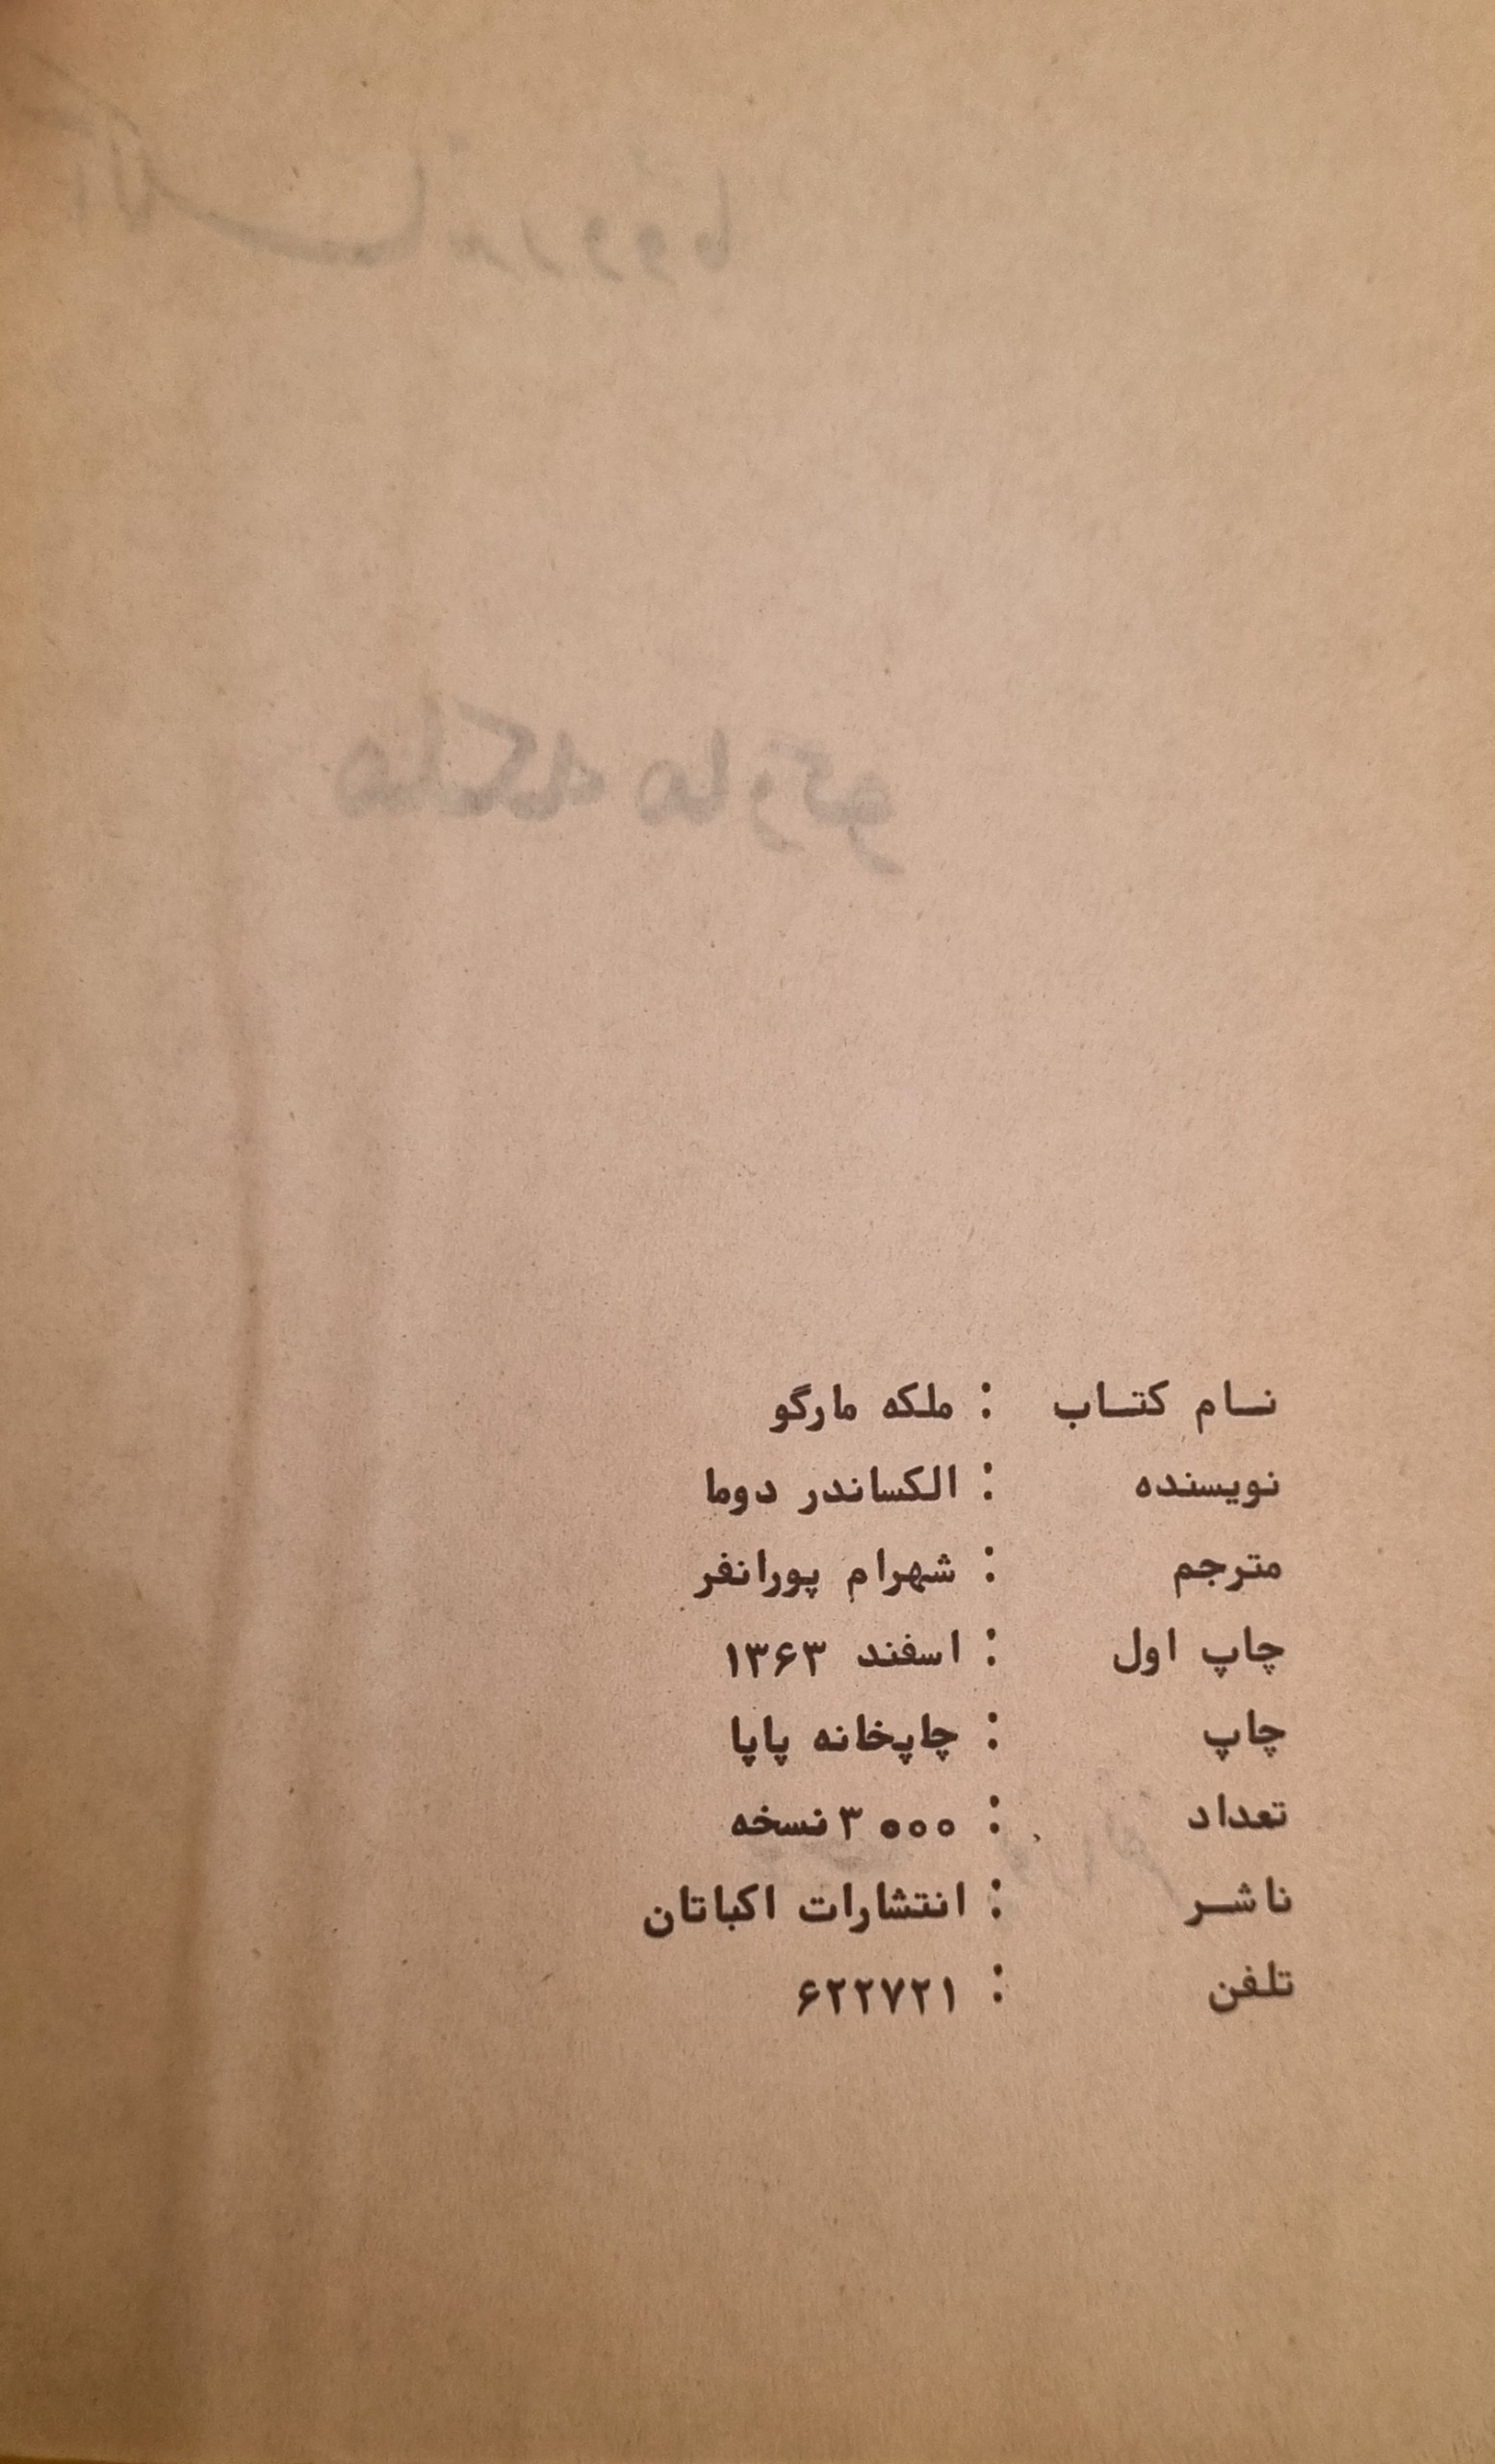 نام کتاب : ملکه مارگو
نویسنده : الکساندر دوما
مترجم : شهرام پورانفر
چاپ اول : اسفند ۱۳۶۳
چاپ : چاپخانه پاپا
تعداد : ۳۰۰۰ نسخه
ناشر : انتشارات اکباتان
تلفن : ۶۲۲۷۲۱